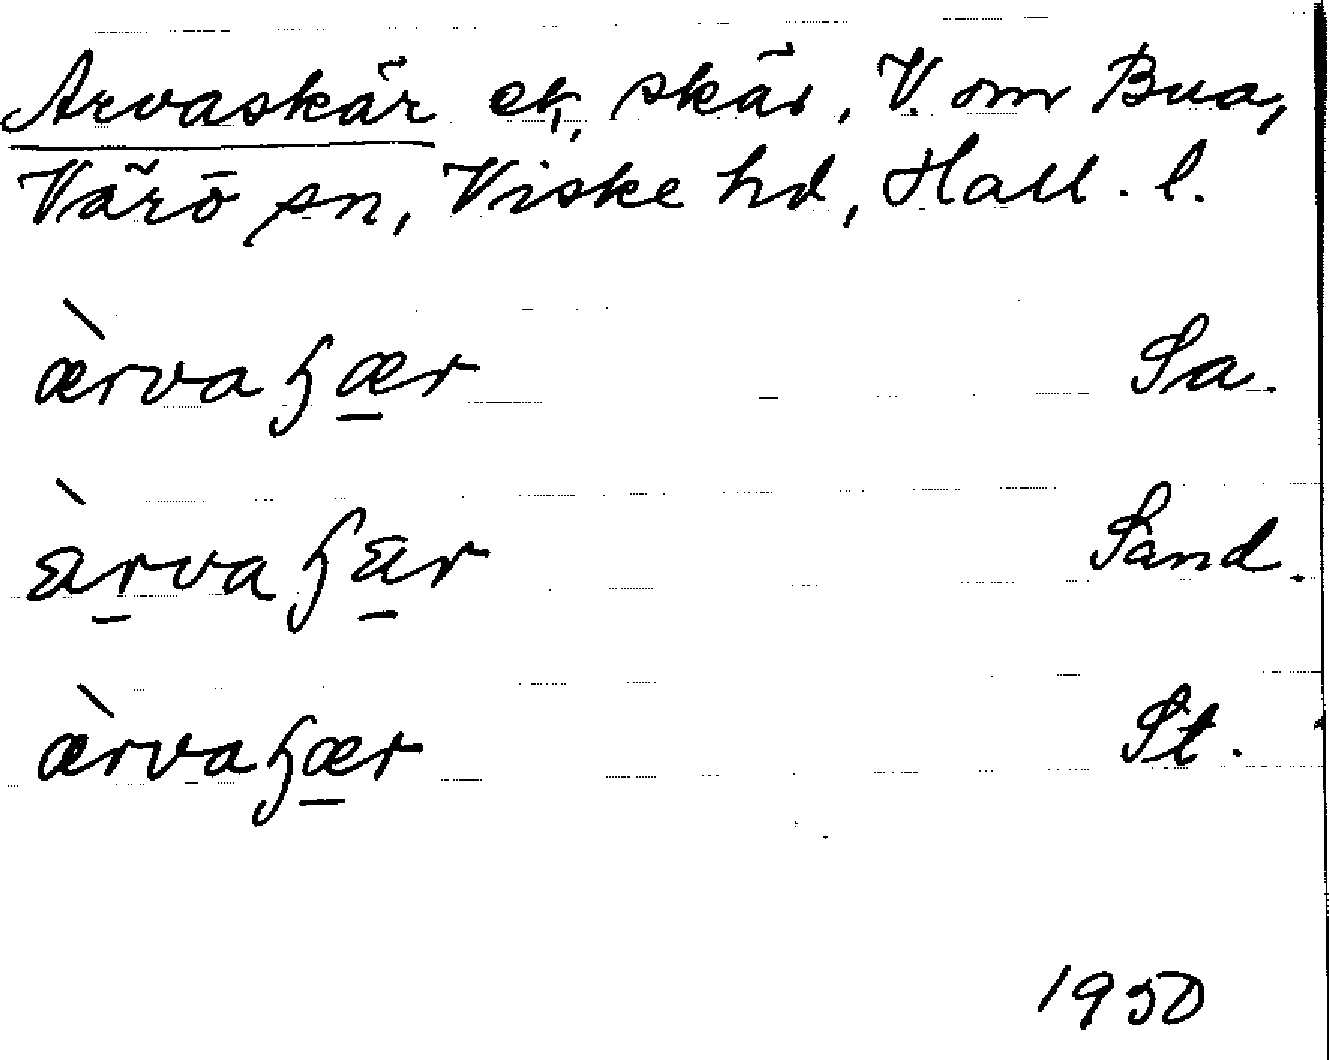 Arvaskär ek, skär, V. om Bua,
Värö sn, Viske hd, Hall. l.
àrvaʒær Sa.
àrvaʒær Sand.
àrvaʒær St.
1950